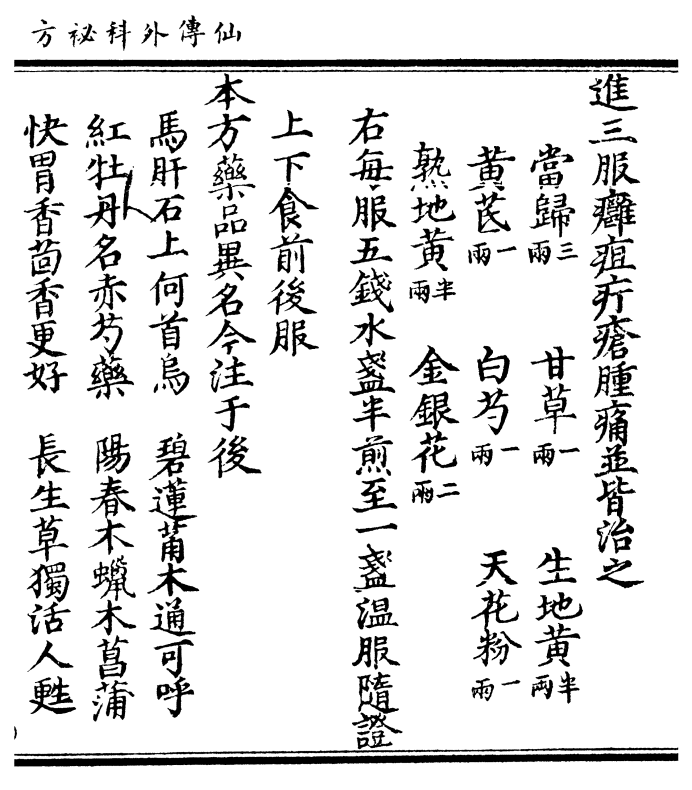 仙傳外科祕方
進三服癰疽疔瘡腫痛並皆治之
當歸三兩 甘草一兩 生地黄半兩
黄芪一兩 白芍一兩 天花粉一兩
熟地黄半兩 金銀花二兩
右每服五錢水盞半煎至一盞温服隨證
上下食前後服
本方藥品異名今注于後
馬肝石上何首烏 碧蓮莆木通可呼
紅牡丹名赤芍藥 陽春木蠟木菖蒲
快胃香茴香更好 長生草獨活人甦